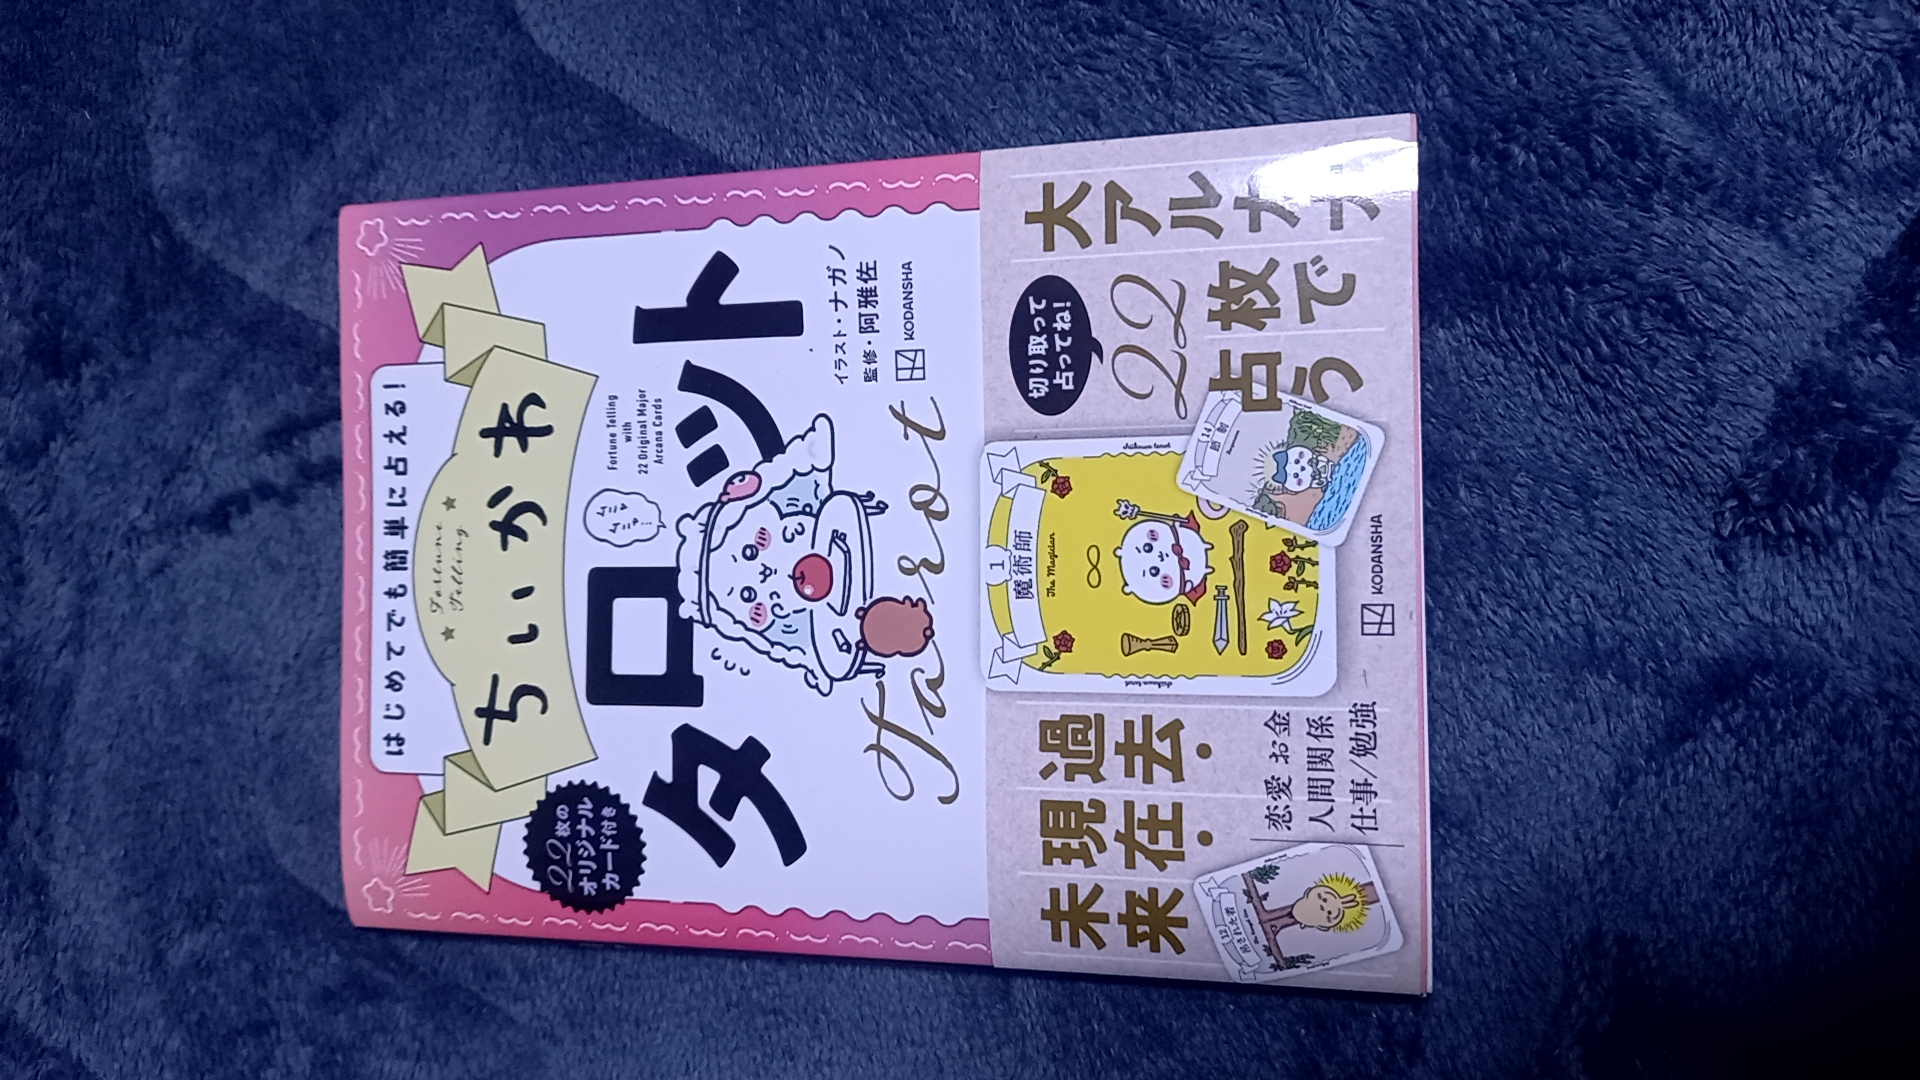 はじめてでも簡単に占える!
Fortune
Telling
ちいかわ
22枚の
オリジナル
カード付き
タロット
Fortune Telling
with
22 Original Major
Arcana Cards
Tarot
イラスト・ナガノ
監修・阿雅佐
KODANSHA
過去・
現在・
未来
恋愛 お金
人間関係
仕事/勉強
1
魔術師
The Magician
切り取って
占ってね!
大アルカナ
22枚で
占う
14
節制
12
吊された者
KODANSHA